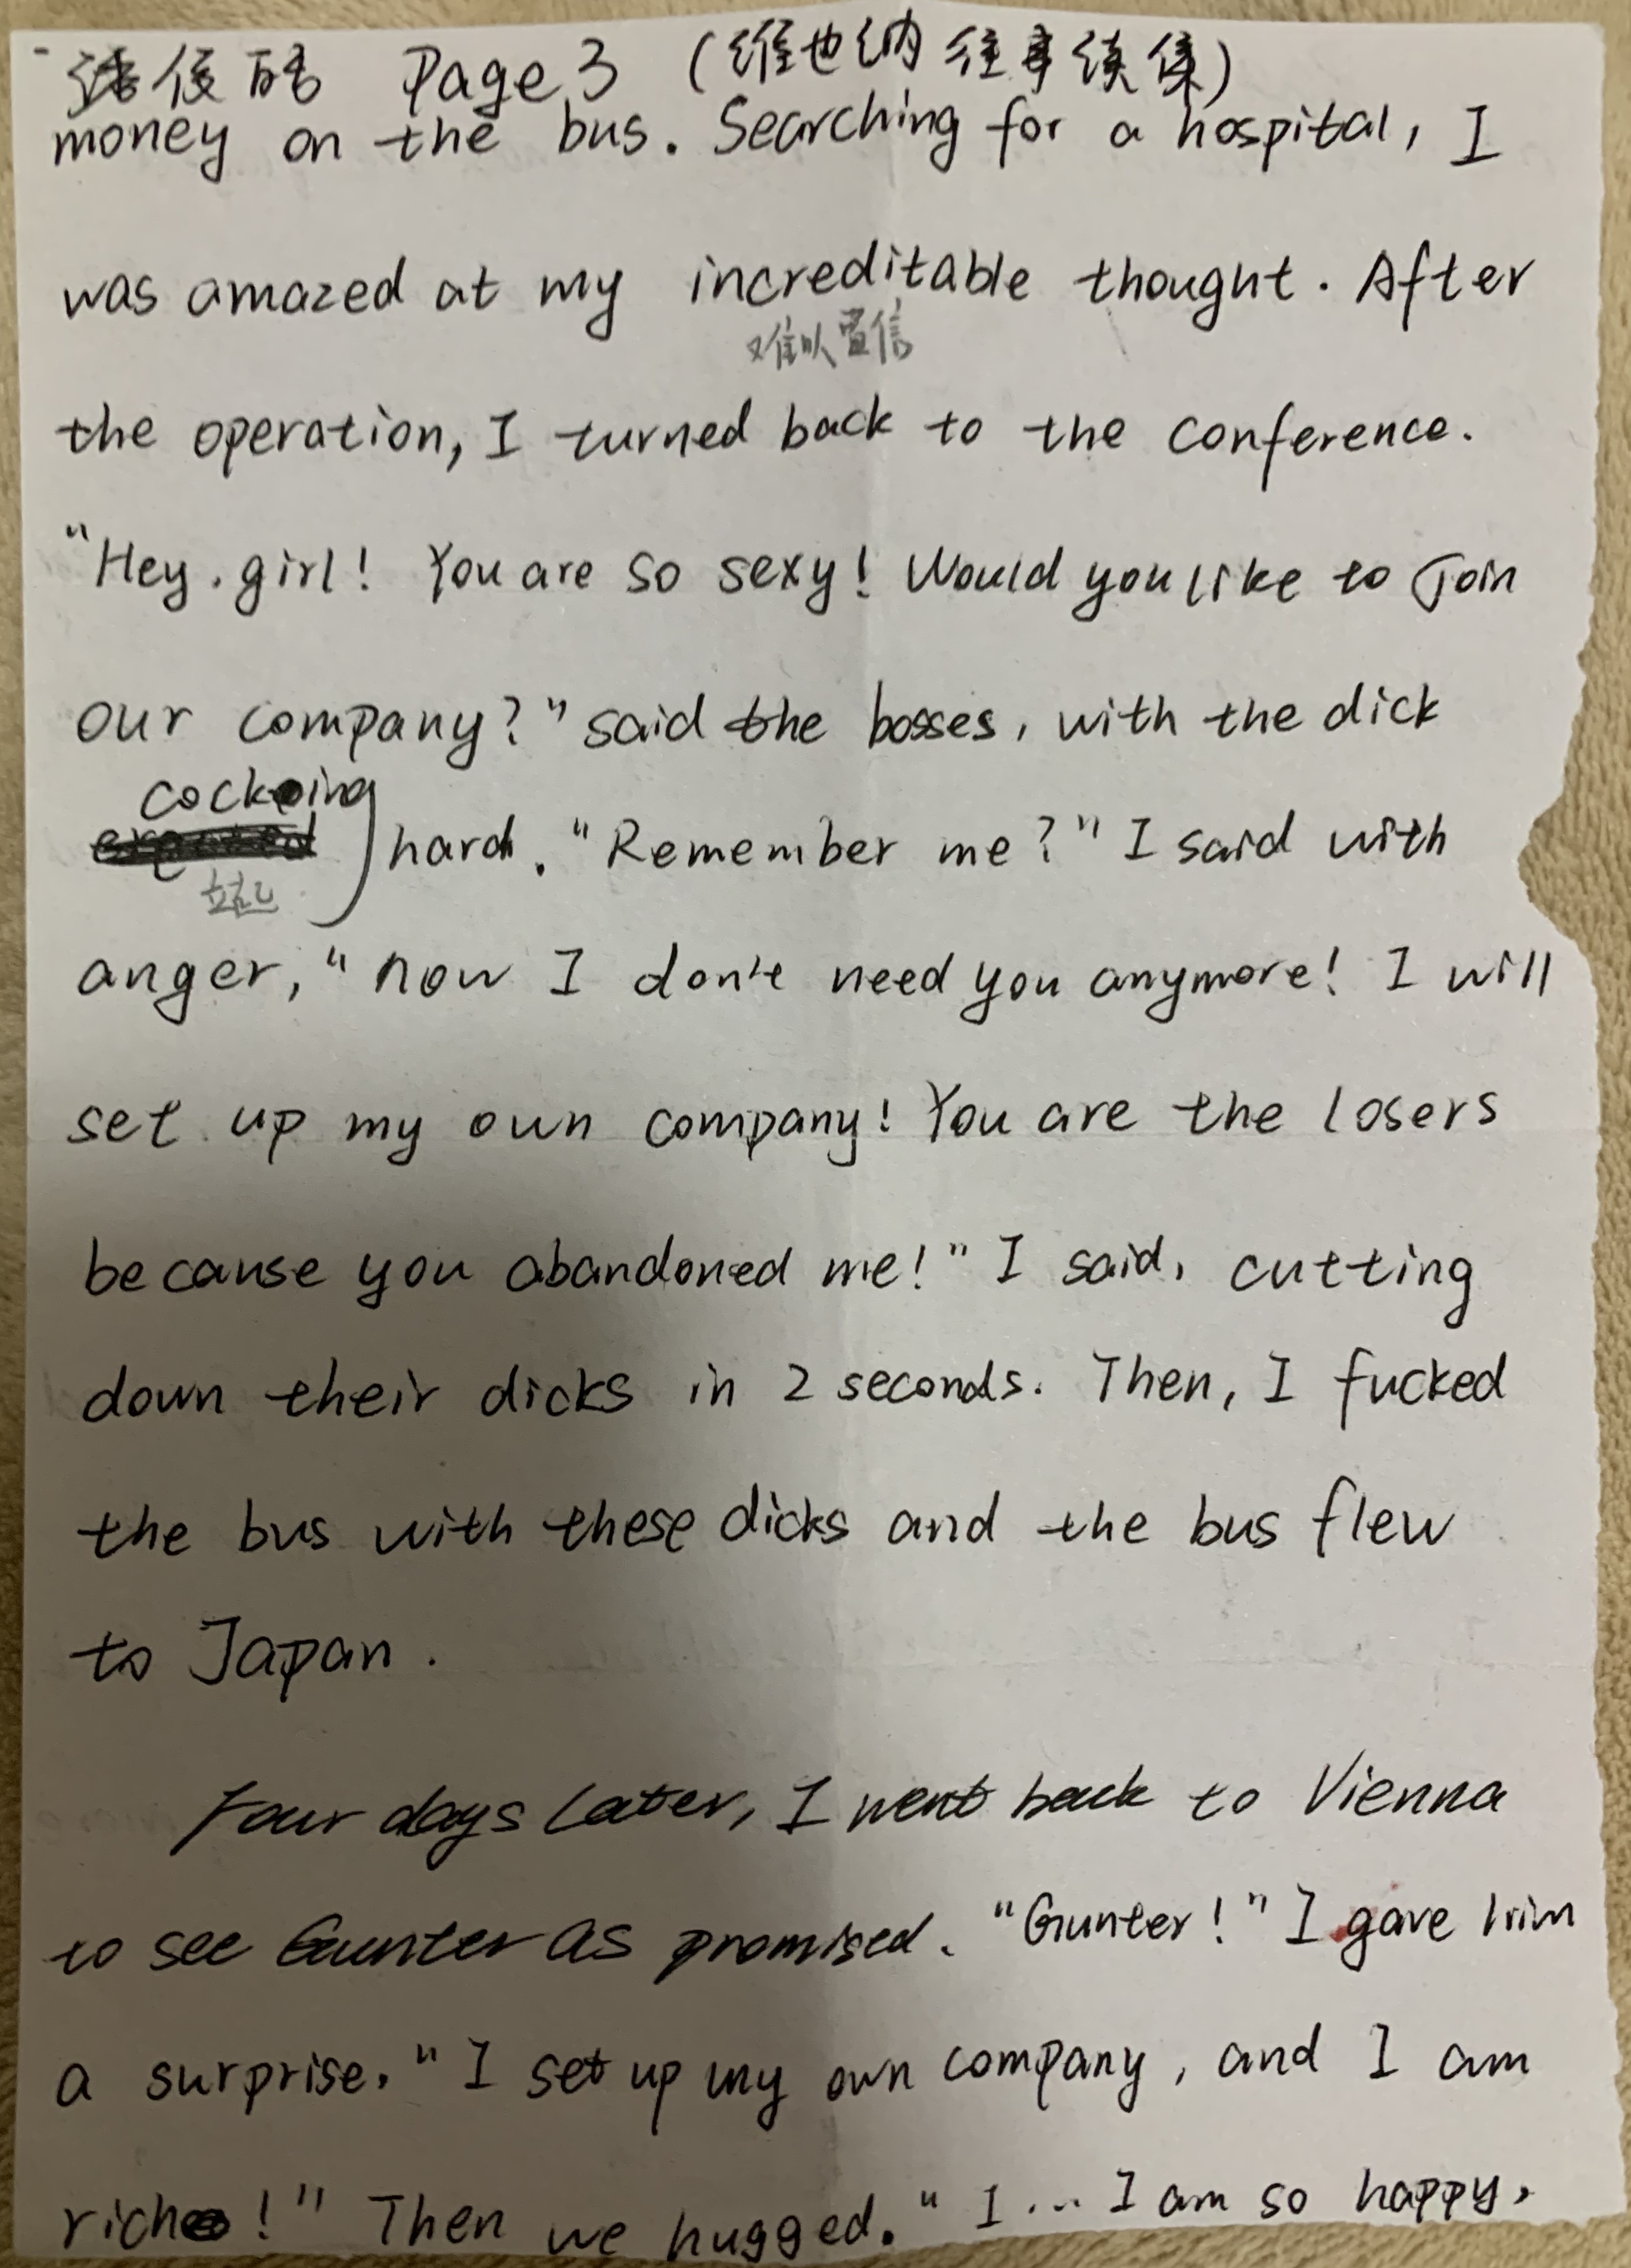 Page 3 (维也纳往事续集)
money on the bus. Searching for a hospital, I
was amazed at my increditable thought. After
难以置信
the operation, I turned back to the conference.
"Hey, girl! You are so sexy! Would you like to join
our company?" said the bosses, with the dick
cocking
hard. "Remember me?" I said with
立起
anger, "now I don't need you anymore! I will
set up my own company! You are the losers
because you abandoned me!" I said, cutting
down their dicks in 2 seconds. Then, I fucked
the bus with these dicks and the bus flew
to Japan.
Four days later, I went back to Vienna
to see Gunter as promised. "Gunter!" I gave him
a surprise. "I set up my own company, and I am
rich!" Then we hugged. "I ... I am so happy,